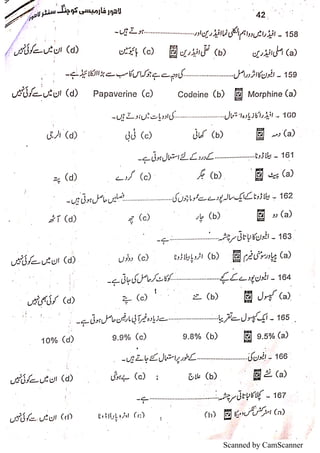 لاہور فارمیسی کوچنگ سنٹر لاہور
42
158 - ایفیڈرا میں دو اہم الکلی نما ایفیڈرین اور ------ ہوتے ہیں۔
(a) اصلی ایفیڈرین (b) نقلی ایفیڈرین (c) ہائیوسین (d) ان میں سے کوئی نہیں
159 - افیون کا اثر دراصل ------ کی وجہ سے ہے جو کہ اس کا سب سے بڑا الکلائیڈ ہے۔
(a) Morphine (b) Codeine (c) Papaverine (d) ان میں سے کوئی نہیں
160 - ایفیڈرا کا زیادہ استعمال ------ کی ادویات میں ہوتے ہیں۔
(a) دمہ (b) کھانسی (c) ٹی بی (d) الرجی
161 - بیلاڈونا ------ کے درد کے لئے استعمال ہوتی ہے۔
(a) پیٹ (b) جگر (c) گردے (d) پتہ
162 - بیلاڈونا کے ایک سالہ پودے سے عموماً پتوں کی ------ فصلیں حاصل ہوتی ہیں۔
(a) دو (b) چار (c) چھ (d) آٹھ
163 - افیون کا نباتاتی سرچشمہ ------ ہے۔
(a) پیپاور سومنی فیرم (b) اٹروپا بیلاڈونا (c) دونوں (d) ان میں سے کوئی نہیں
164 - افیون پودے کے کچے ------ کو کاٹ کر حاصل کی جاتی ہے۔
(a) کیپسول (b) تنے (c) پتے (d) کوئی بھی نہیں
165 - ایک کیپسول سے تقریباً ------ سے زیادہ غیر آبی مارفین حاصل ہوتی ہے۔
(a) 9.5% (b) 9.8% (c) 9.9% (d) 10%
166 - افیون کی ------ کے طور پر استعمال کئے جاتے ہیں۔
(a) نشے (b) علاج (c) بے ہوشی (d) ان میں سے کوئی نہیں
167 - کچلا کا نباتاتی سرچشمہ ------ ہے۔
(a) اسٹرکنس نکس وامیکا (b) (c) اٹروپا بیلاڈونا (d) ان میں سے کوئی نہیں
Scanned by CamScanner